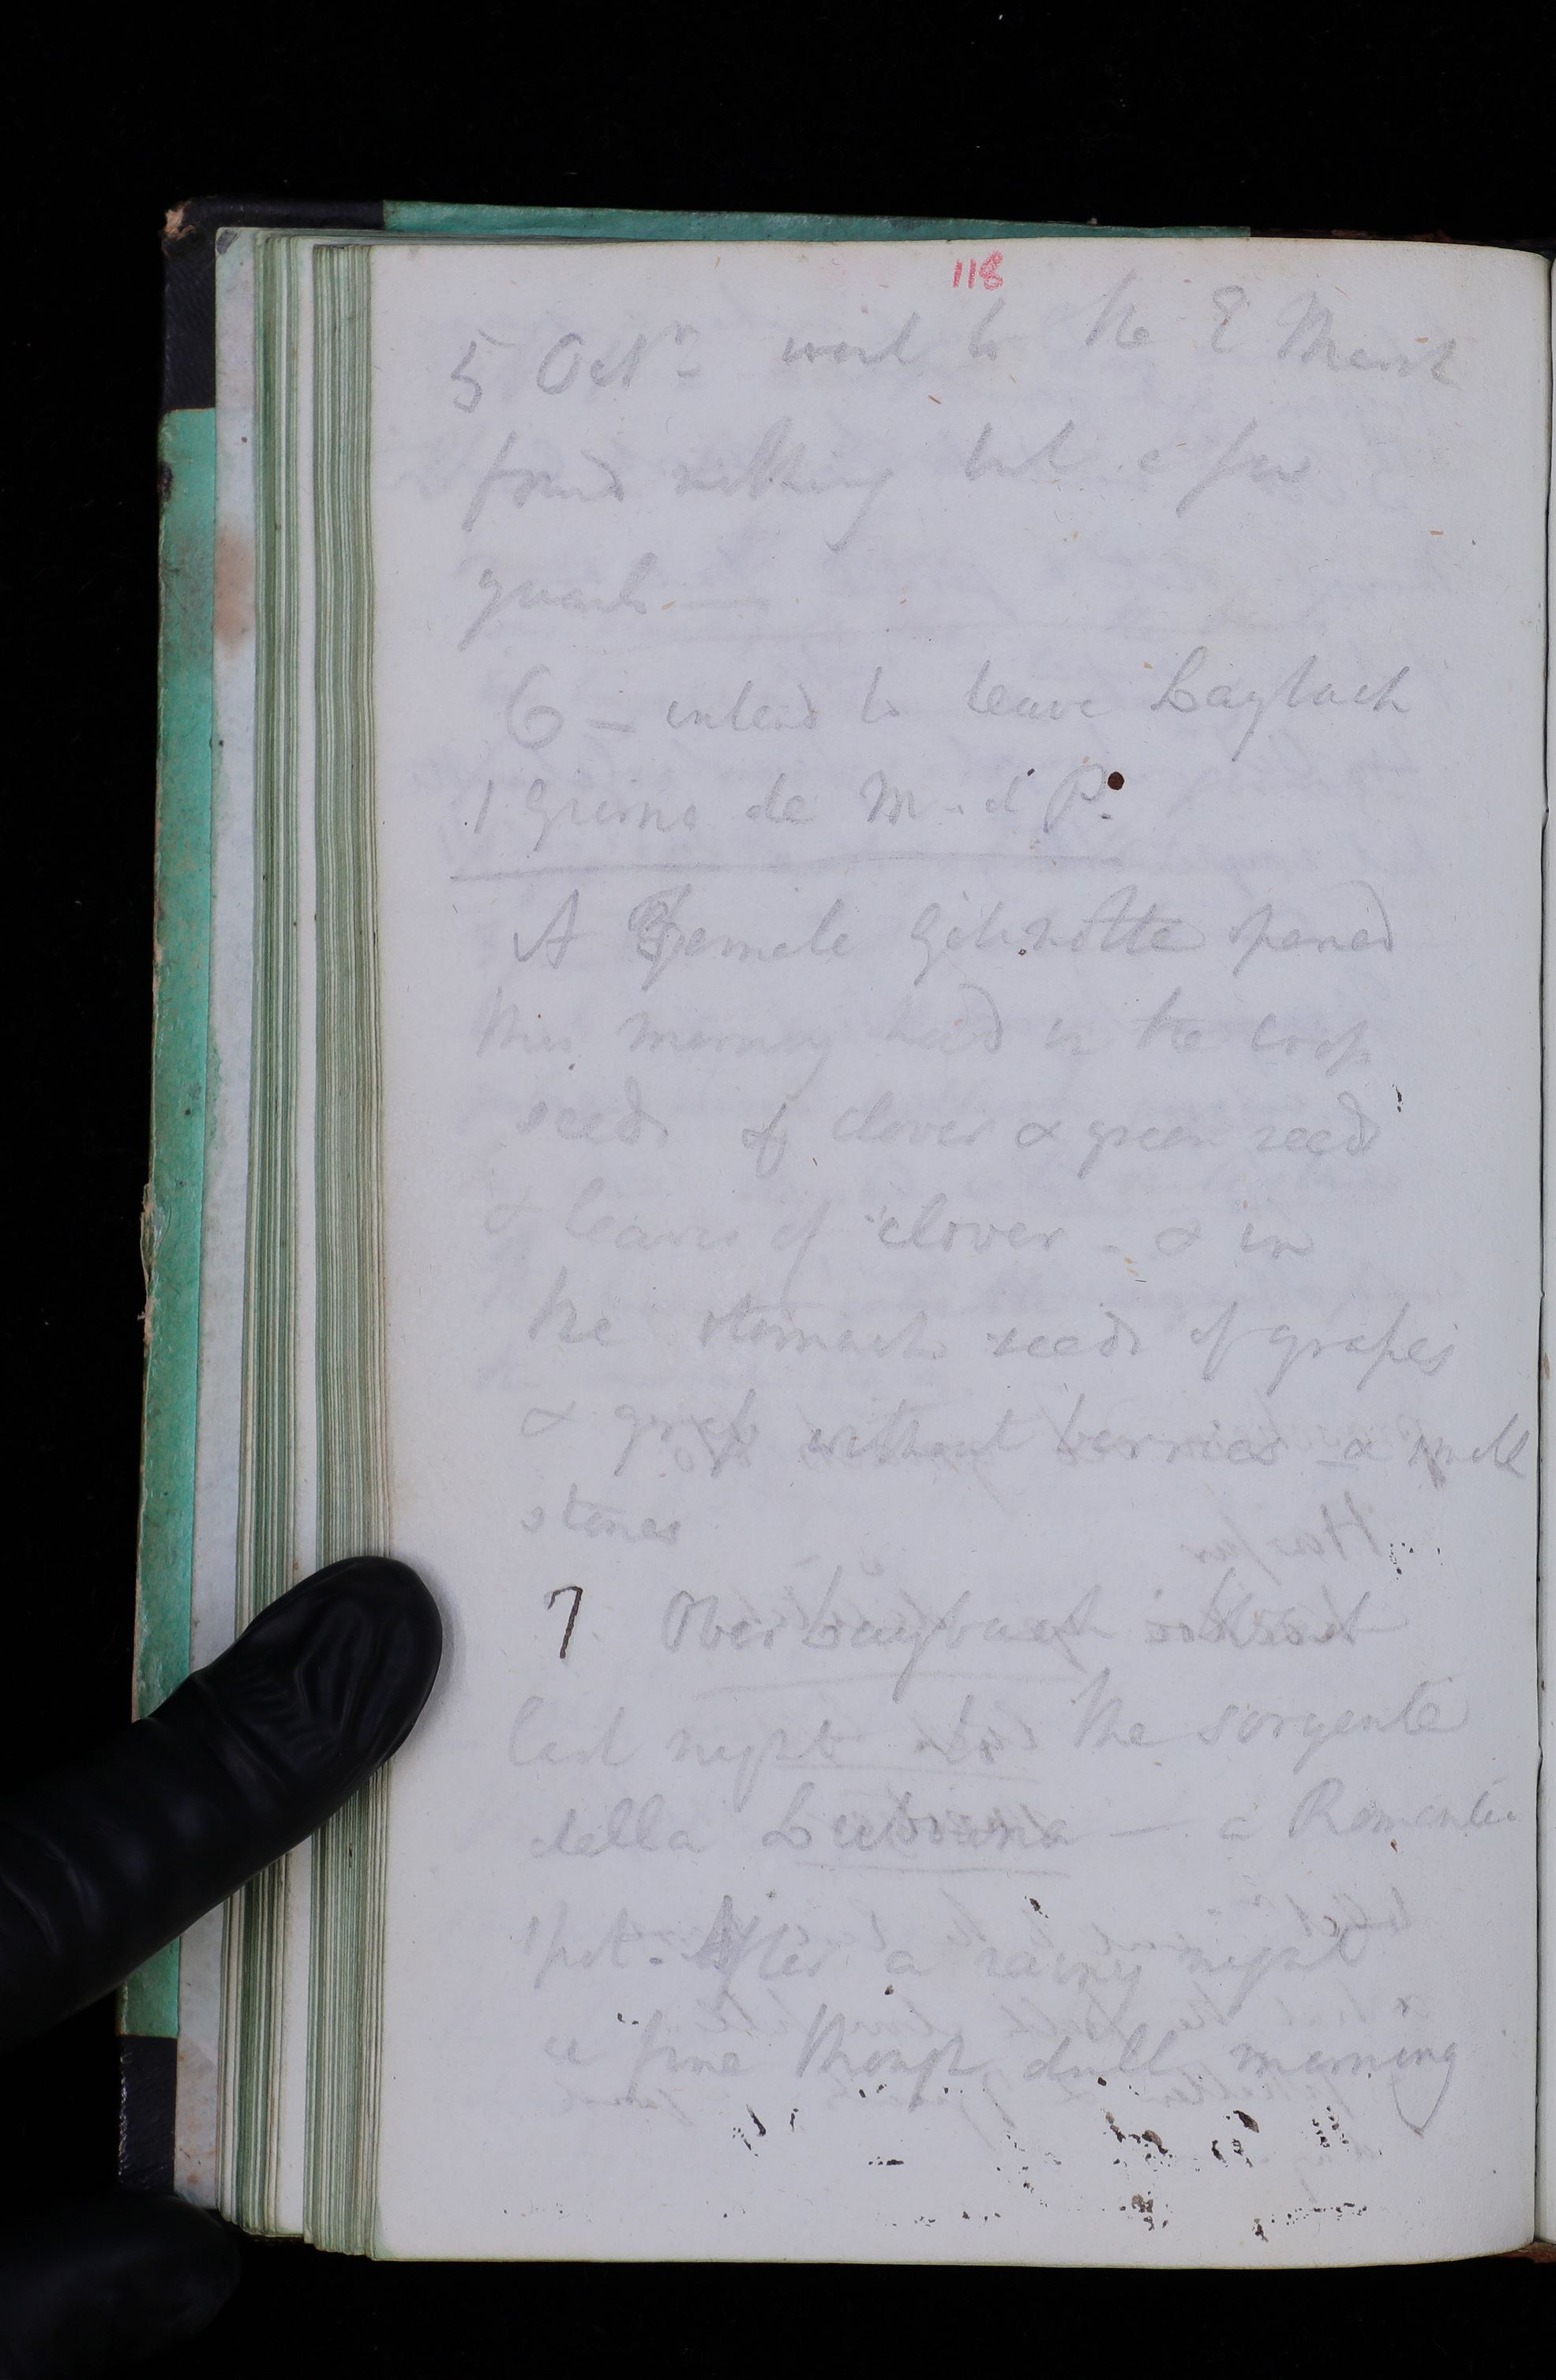 118
5 Octr. went to the E Marsh
found nothing but a few
quails —
6 — intend to leave Laybach
1 Giorno de M. di P.
A Female Gélinotte opened
this morning had in the crop
seeds of clover & green seeds
& leaves of clover - & in
the stomach seeds of grapes
& without berries & small
stones
7 Ober Laybach
last night to the sorgente
della Lubiana — a Romantic
spot. After a rainy night
a fine though dull morning